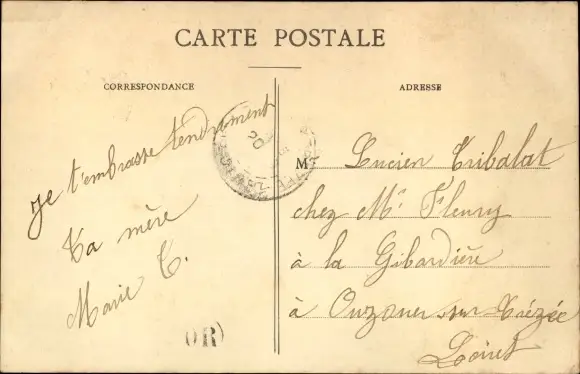 CARTE POSTALE
CORRESPONDANCE
ADRESSE
Je t'embrasse tendrement
Ta mère
Marie T.
OR
Mr Lucien Tribalat
chez Mr Fleury
à la Gibardière
à Ouzouer-sur-Trézée
Loiret